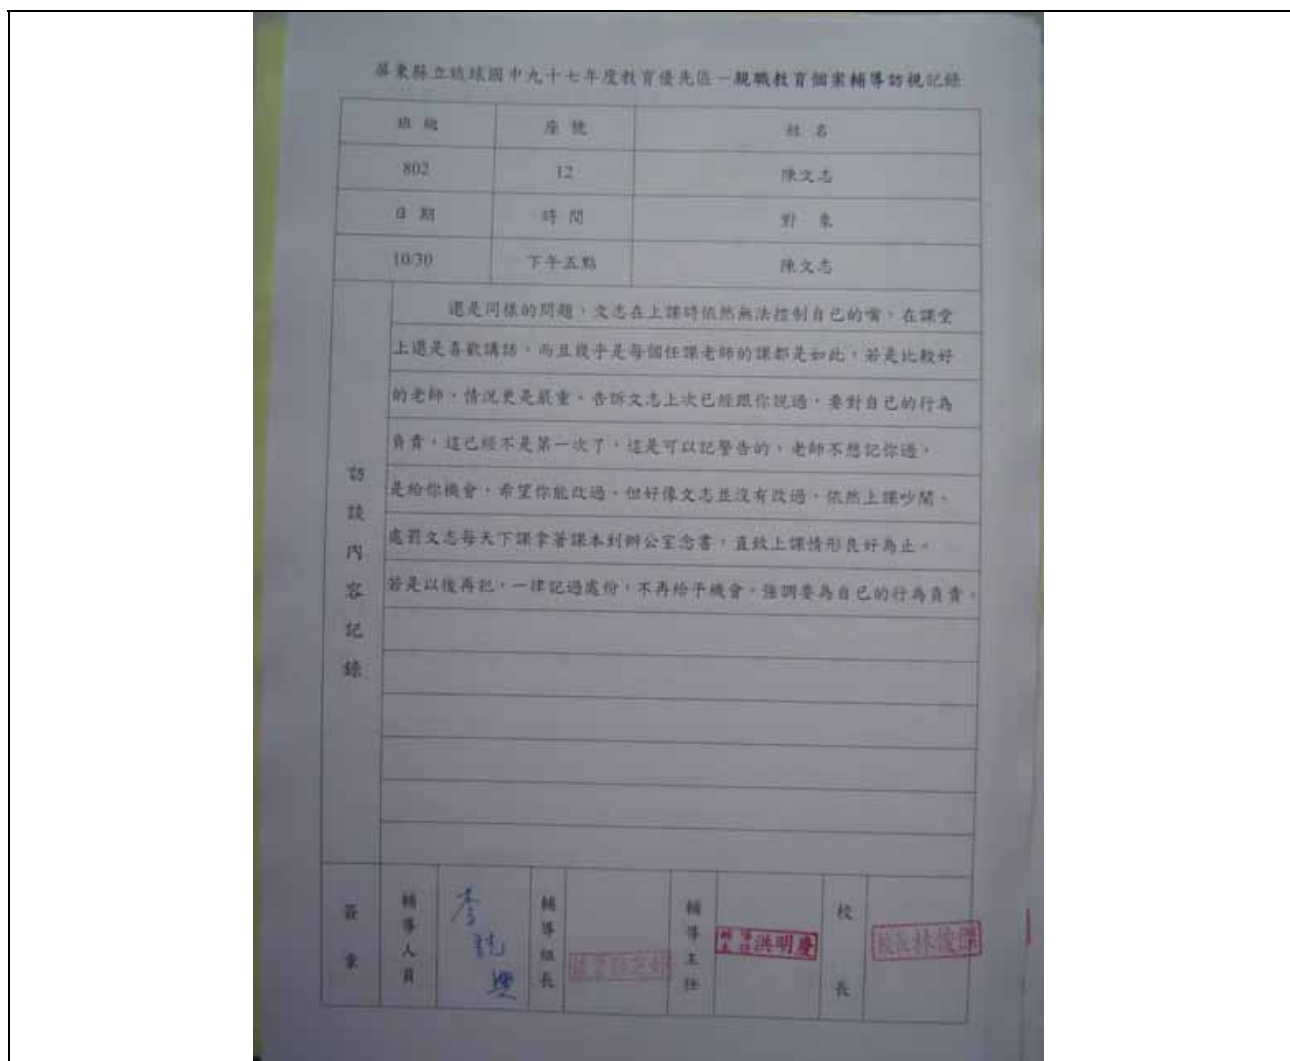 屏東縣立琉球國中九十七年度教育優先區－親職教育個案輔導訪視記錄
班級 座號 姓名
802 12 陳文志
日期 時間 對象
10/30 下午五點 陳文志
訪談內容記錄
還是同樣的問題，文志在上課時依然無法控制自已的嘴，在課堂
上還是喜歡講話，而且幾乎是每個任課老師的課都是如此，若是比較好
的老師，情況更是嚴重。告訴文志上次已經跟你說過，要對自已的行為
負責，這已經不是第一次了，這是可以記警告的，老師不想記你過，
是給你機會，希望你能改過，但好像文志並沒有改過，依然上課吵鬧。
處罰文志每天下課拿著課本到辦公室念書，直致上課情形良好為止。
若是以後再犯，一律記過處份，不再給予機會，強調要為自已的行為負責。
簽章 輔導人員 李 輔導組長 輔導主任 輔導主任洪明慶 校長 校長林俊傑